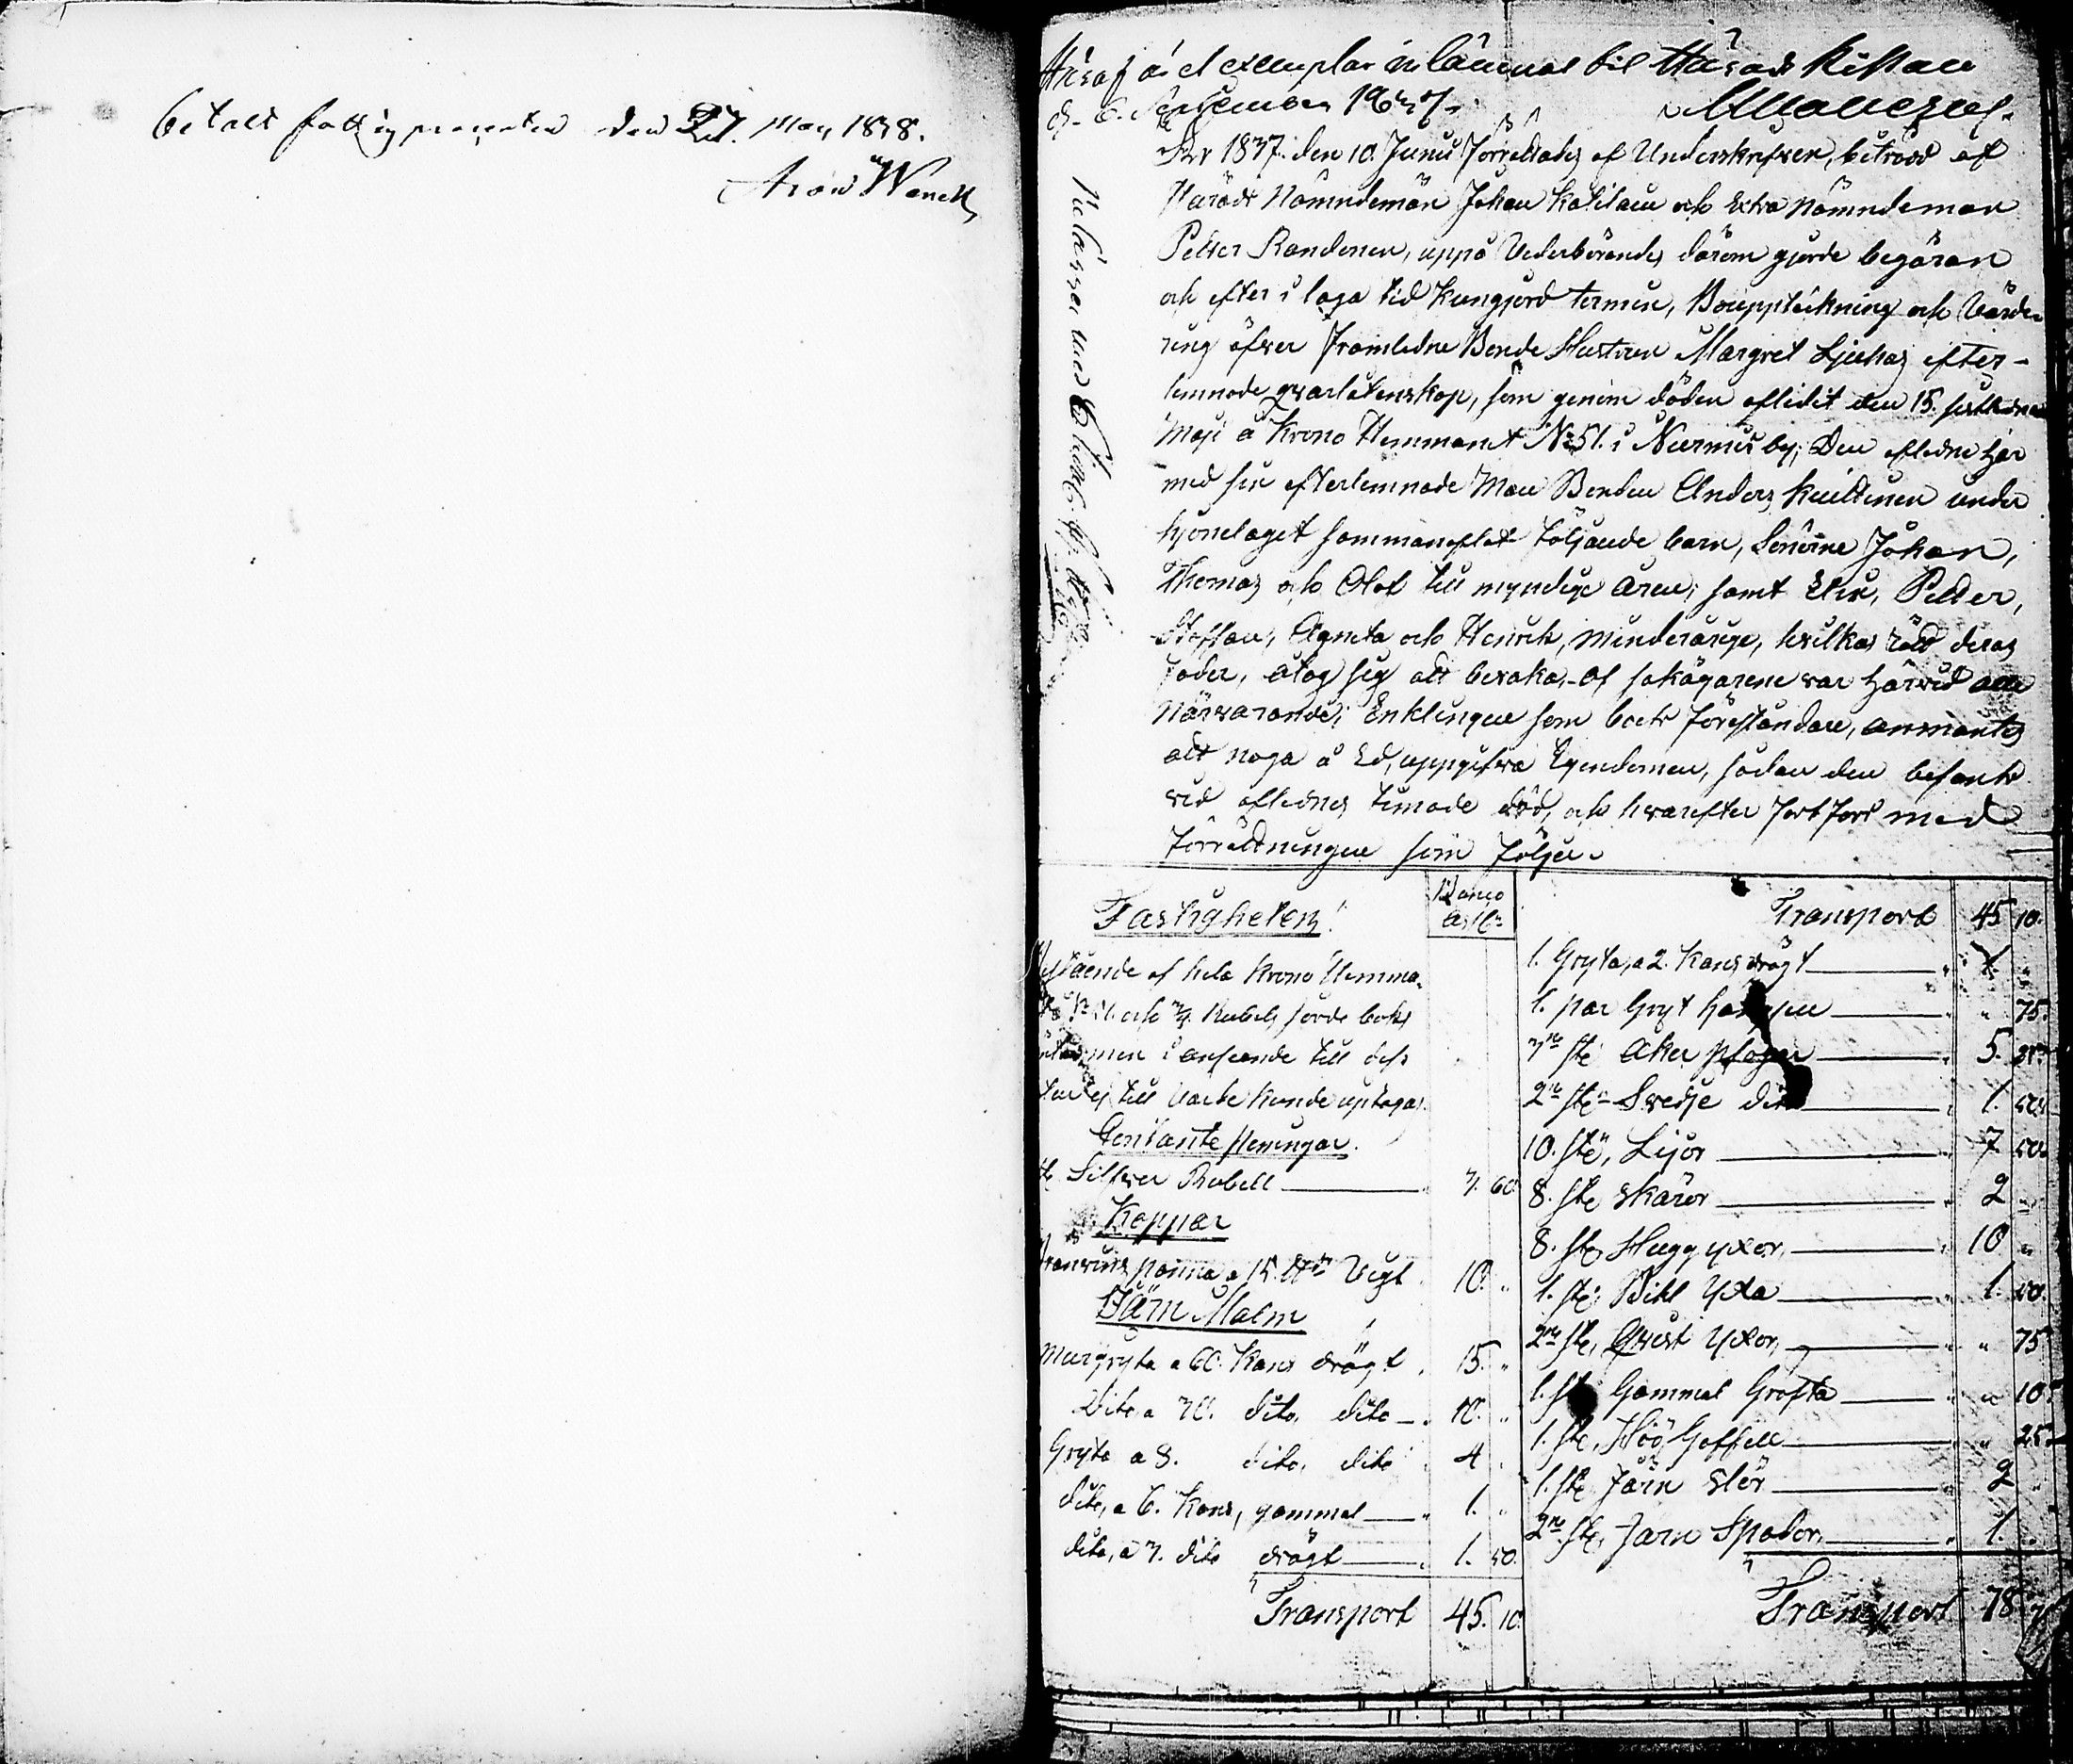 betalt fattigprocenten den 27. Maj 1838.
Aron Wenell
Häraf är et exemplar inlämnat til Härads Kistan
d. 6. September 1837.
År 1837. den 10. Junii förrättades af Underskrifven, biträdd af
Härads Nämndemän Johan Kolilain och Extra Nämndeman
Petter Randonen, uppå Vederbörandes därom gjorde begäran
och efter i laga tid kungjord termin, Bouppteckning och Värde-
ring öfver framledne Bonde Hustrun Margret Ljukas efter-
lemnade qvarlåtenskap, som genom döden aflidit den 15. sistledne
Maji å Krono Hemmanet No 51. i Nurmis by; Den aflidne har
med sin efterlemnade Man Bonden Anders Knuttinen under
hjonelaget sammanaflat följande barn, Sönerne Johan,
Thomas och Olof till myndige åren; samt Eric, Petter,
Staffan, Agneta och Henrik, minderårige, hvilkas rätt deras
fader, åtog sig att bevaka. Af sakägarene var härvid alla
närvarande; Enklingen som boets föreståndare, anmantes
att noga å Ed, uppgifva Egendomen, sådan den befants
vid aflednes timade död, och hvarefter fortfors med
förrättningen som följer.
Fastigheten!
Banco
Ass:
Bestående af hela Krono Hemma-
51. och Rubels jorde boks
men i anseende till dess
ej till värde kunde uptagas.
Contante penningar.
Silfver Rubell 3. 60.
Koppar
Bränvins panna a 15. Vigt 10. "
Järn Malm
Murgryta a 60. Kans drägt 15. "
Dito, a 30. dito, dito 10. "
Gryta a 8. dito, dito 4 "
dito, a 6. Kans, gammal 1. "
dito, a 3. dito drägt 1. 50.
Transport 45. 10.
Transport 45 10.
1. Gryta, a 2. Kans drägt 1. "
1. par Gryt " 75.
3ne st: Åker plogar 5. 25.
2ne st: Svedje dito 1. 50.
10. st: Lijor 7 50.
8. st: skäror 2 "
8. st: Hugg yxor 10 "
1. st: Bihl Yxa 1. 50.
2ne st: Qvist Yxor " 75
1. st: Gammal " 10
1. st: Hög Gaffell " 25
1. st: Järn stör 2 "
2ne st: Jarn Spador 1. "
Transport 78